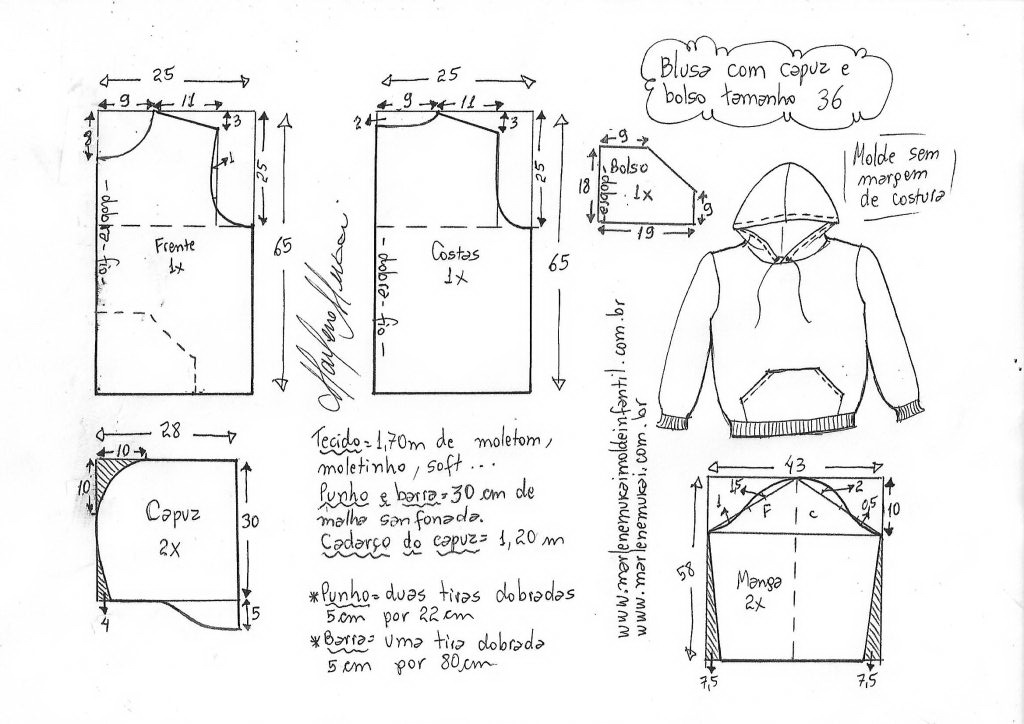 Blusa com capuz e
bolso tamanho 36
Molde sem
margem
de costura
25
9
11
3
8
1
25
65
dobra - fio
Frente
1x
25
9
11
2
3
25
65
dobra - fio
Costas
1x
9
18
Bolso
1x
dobra
9
19
Marlene Mukai
28
10
10
Capuz
2x
30
4
5
Tecido = 1,70m de moletom,
moletinho, soft...
Punho e barra = 30 cm de
malha sanfonada.
Cadarço do capuz = 1,20 m
*Punho = duas tiras dobradas
5cm por 22cm
*Barra = uma tira dobrada
5cm por 80cm
www.marlenemukaimoldeinfantil.com.br
www.marlenemukai.com.br
43
1,5
2
1
F
c
0,5
10
58
Manga
2x
7,5
7,5